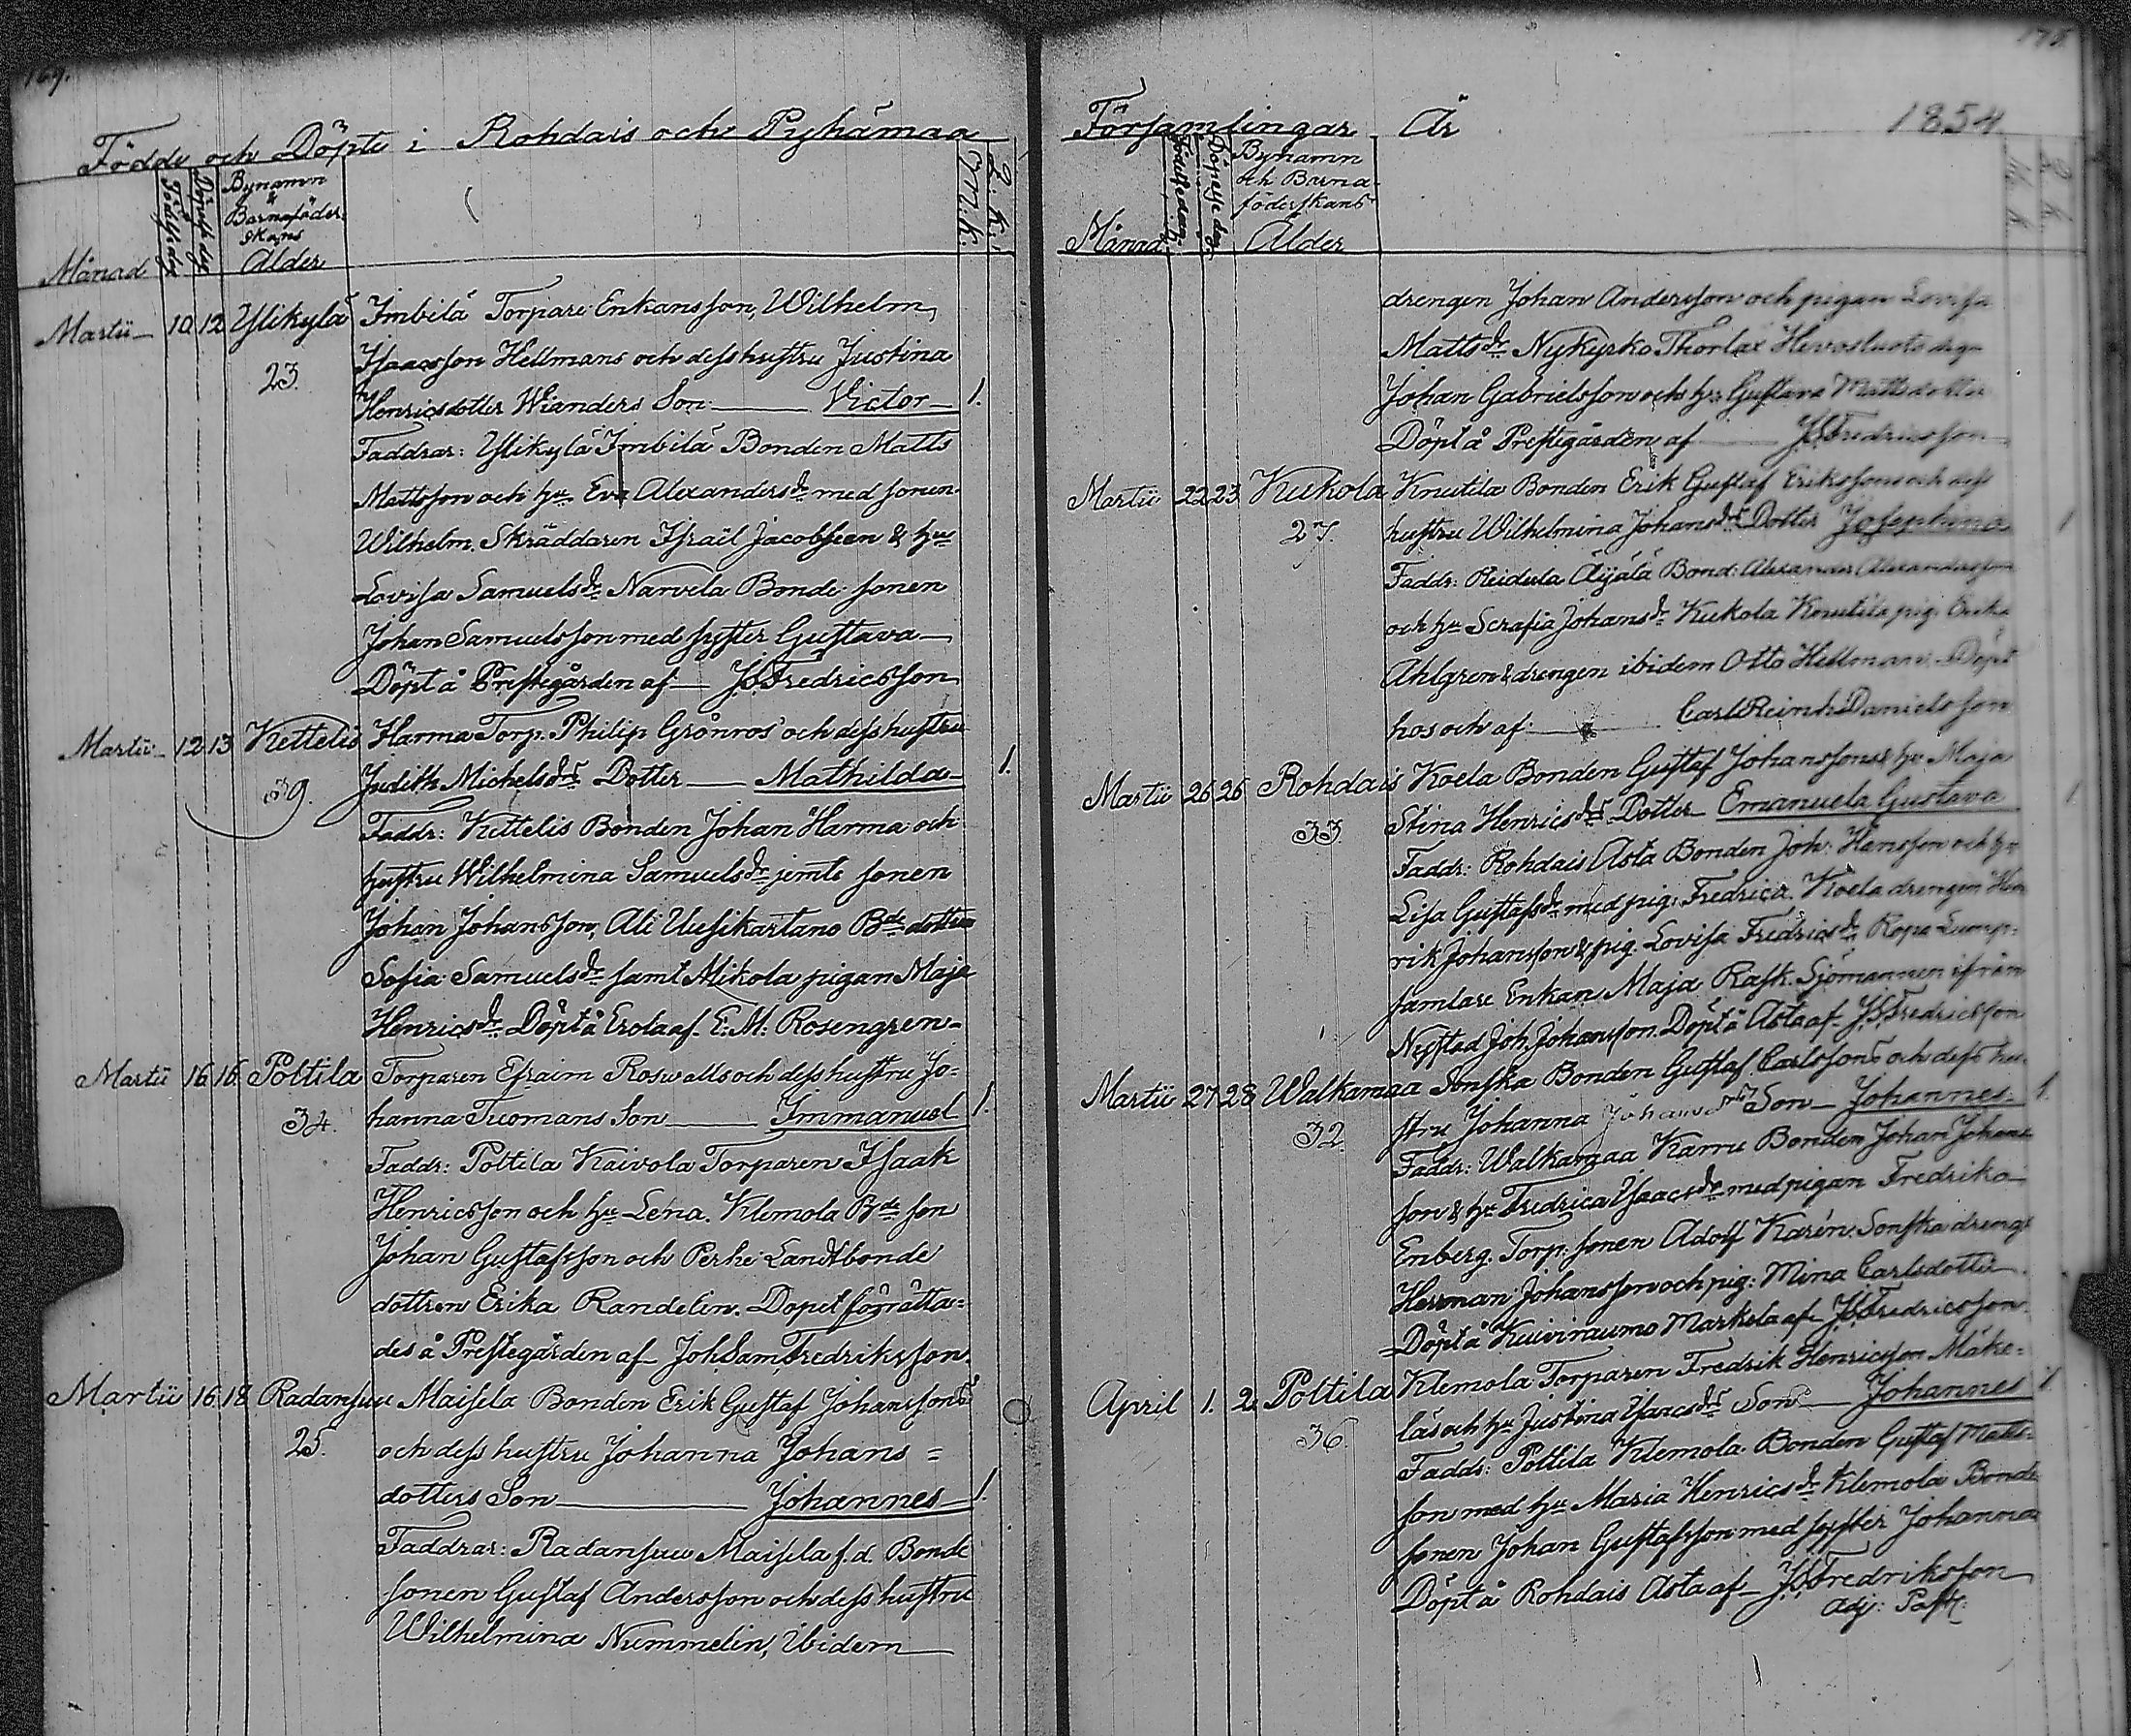 169.
Födde och Döpte i Rohdais och Pyhämaa
Månad
Födelsedag
Döpelsedag
Bynamn
&
Barnaföder-
skans
Ålder
M. K.
Q. K.
Martii 10 12 Ylikylä Imbilä Torpare Enkans son, Wilhelm
23. Isaacsson Hellmans och dess hustru Justina
Henricsdotter Wianders Son Victor 1.
Faddrar: Ylikylä Imbilä Bonden Matts
Mattsson och hu Eva Alexandersdr med sonen
Wilhelm. Skräddaren Israël Jacobsson & hu
Lovisa Samuelsdr Narvela Bonde sonen
Johan Samuelsson med syster Gustava
Döpt å Prestegården af JSFredricsson
Martii 12 13 Kettelis Harma Torp. Philip Grönros och dess hustru
39. Judith Michelsdrs Dotter Mathilda 1.
Faddr: Kettelis Bonden Johan Harma och
hustru Wilhelmina Samuelsdr jemte sonen
Johan Johansson, Ali Uusikartano Bde dottren
Sofia Samuelsdr samt Mikola pigan Maja
Henricsdr Döpt å Erola af E: M: Rosengren
Martii 16 16. Poltila Torparen Efraim Roswalls och dess hustru Jo=
34. hanna Tuomans Son Immanuel 1.
Faddr: Poltila Kaivola Torparen Isaak
Henricsson och hu Lena. Klemola Bde son
Johan Gustafsson och Perhe Landtbonde
dottren Erika Randelin. Dopet förrätta=
des å Prestegården af JohSamFredriksson.
Martii 16 18 Radansuu Maisela Bonden Erik Gustaf Johanssons
25. och dess hustru Johanna Johans =
dotters Son Johannes 1.
Faddrar: Radansuu Maisela f.d. Bonde
sonen Gustaf Andersson och dess hustru
Wilhelmina Nummelin, Ibidem
Församlingar År 1854
Månad
Födelsedag
Döpelse dag
Bynamn
och Barna-
föderskans
Ålder
drengen Johan Andersson och pigan Lovisa
Mattsdr Nykyrko Thorlax Hevosluoto
Johan Gabrielsson och hu: Gustava Mattsdotter
Döpt å Prestegården af JSFredricsson
Martii 22 23 Kukola Knutila Bonden Erik Gustaf Erikssons och dess
27. hustru Wilhelmina Johansdrs Dotter Josephina 1
Faddr: Reidula Äijälä Bond: Alexander Alexandersson
och hu Serafia Johansdr Kukola Knutila pig. Erika
Ahlgren & drengen ibidem Otto Hellman. Döpt
hos och af Carl Reinh: Danielsson
Martii 26 26 Rohdais Koela Bonden Gustaf Johanssons & hu Maja
33. Stina Henricsdrs Dotter Emanuela Gustava 1
Faddr: Rohdais Asta Bonden Joh: Hansson och hu
Lisa Gustafsdr med pig: Fredrica. Koela drengen Hen
rik Johansson & pig. Lovisa Fredricsdr Ropa Lump-
samlare Enkan Maja Rask. Sjömannen ifrån
Nystad Joh. Johansson. Döpt å Asta af JSFredricsson
Martii 27 28 Walkamaa Sonska Bonden Gustaf Carlssons och dess hu-
32. stru Johanna Johansdrs Son Johannes 1.
Faddr: Walkamaa Karru Bonden Johan Johans
son & hu Fredrica Isaacsdr med pigan Fredrika
Enberg. Torp: sonen Adolf Karén. Sonska dreng:
Herman Johansson och pig: Mina Carlsdotter
Döpt å Kuiviraumo Markola af JSFredricsson
April 1. 2. Poltila Klemola Torparen Fredrik Henricsson Mäke=
36. läs och hu Justina Isaacsdrs Son Johannes 1
Faddr: Poltila Klemola Bonden Gustaf Matts-
son med hu Maria Henricsdr Klemola Bonde
sonen Johan Gustafsson med syster Johanna
Döpt å Rohdais Asta af JSFredriksson
adj: Past: